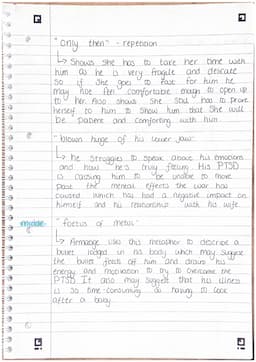 "Only then" - repetition
↳ Shows she has to take her time with
him as he is very fragile and delicate
so if she goes to fast for him he
may not feel comfortable enough to open up
to her. Also shows She Still has to prove
herself to him to show him that she will
be patient and comforting with him
"blown hinge of his lower jaw"
↳ He struggles to speak about his emotions
and how he's truly feeling. His PTSD
is causing him to be unable to move
past the mental effects the war has
caused which has had a negative impact on
himself and his relationship with his wife.
"foetus of metal"
↳ Armitage uses this metaphor to describe a
bullet lodged in his body which may suggest
the bullet feeds off him and drains his
energy and motivation to try to overcome the
PTSD. It also may suggest that his illness
is so time-consuming as having to look
after a baby